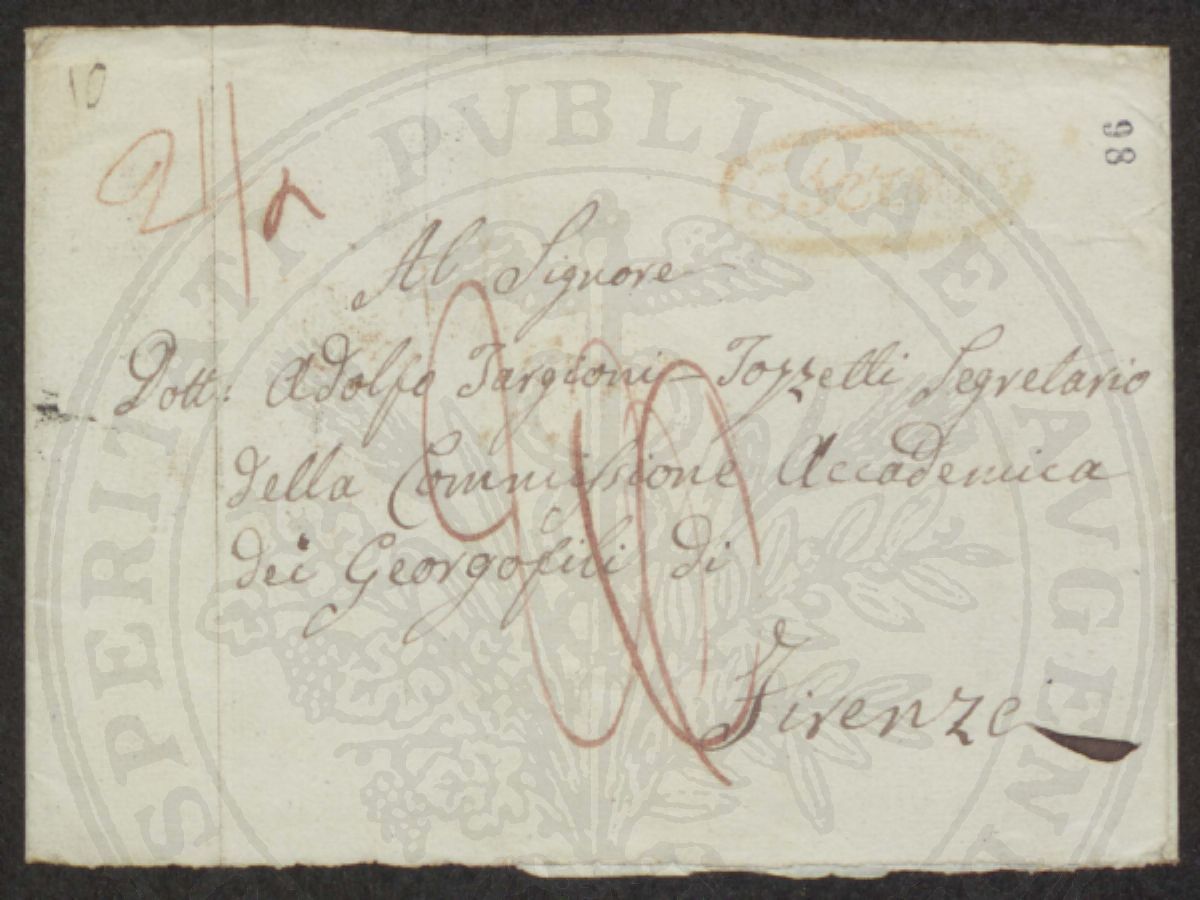 10
98
Al Signore
Dott: Adolfo Targioni-Tozzetti Segretario
della Commissione Accademica
dei Georgofili di
Firenze
PROSPERITATI PVBLICAE AVGENDAE